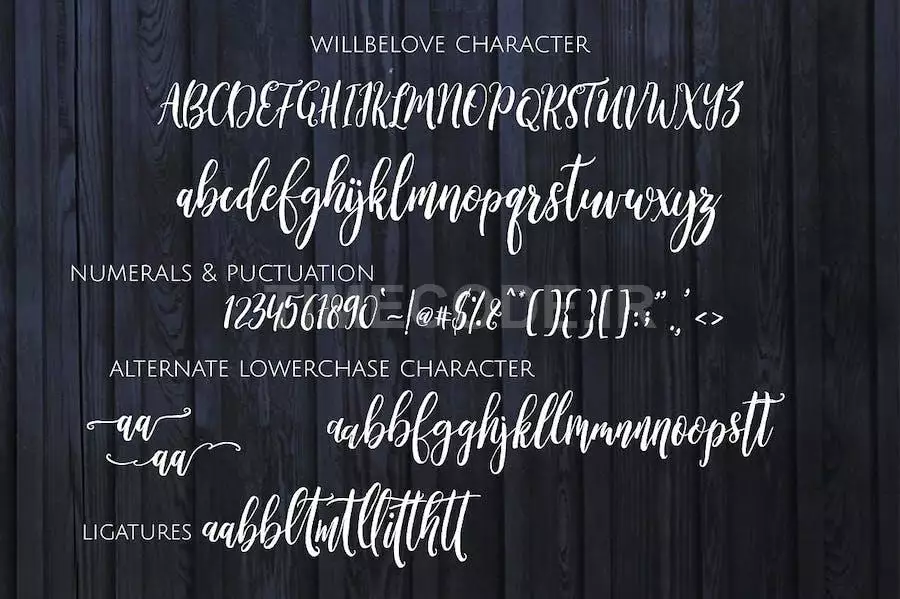 WILLBELOVE CHARACTER
ABCDEFGHIJKLMNOPQRSTUVWXYZ
abcdefghijklmnopqrstuvwxyz
NUMERALS & PUCTUATION
1234567890`~!@#$%&^*(){}[]:;",.,'<>
TIMECODE.IR
ALTERNATE LOWERCHASE CHARACTER
aa
aabbfgghjkllmmnnnoopstt
aa
LIGATURES aabbltmtllittthtt